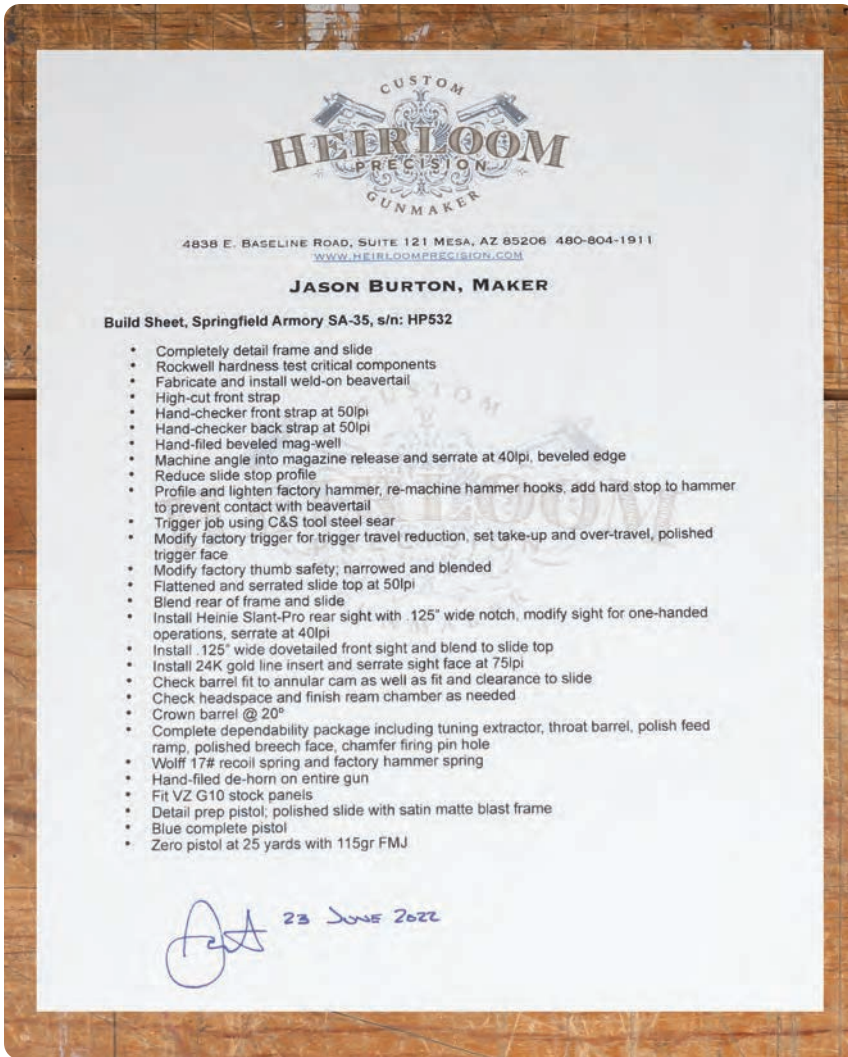 CUSTOM
HEIRLOOM
PRECISION
GUNMAKER
4838 E. BASELINE ROAD, SUITE 121 MESA, AZ 85206 480-804-1911
WWW.HEIRLOOMPRECISION.COM
JASON BURTON, MAKER
Build Sheet, Springfield Armory SA-35, s/n: HP532
• Completely detail frame and slide
• Rockwell hardness test critical components
• Fabricate and install weld-on beavertail
• High-cut front strap
• Hand-checker front strap at 50lpi
• Hand-checker back strap at 50lpi
• Hand-filed beveled mag-well
• Machine angle into magazine release and serrate at 40lpi, beveled edge
• Reduce slide stop profile
• Profile and lighten factory hammer, re-machine hammer hooks, add hard stop to hammer
to prevent contact with beavertail
• Trigger job using C&S tool steel sear
• Modify factory trigger for trigger travel reduction, set take-up and over-travel, polished
trigger face
• Modify factory thumb safety; narrowed and blended
• Flattened and serrated slide top at 50lpi
• Blend rear of frame and slide
• Install Heinie Slant-Pro rear sight with .125" wide notch, modify sight for one-handed
operations, serrate at 40lpi
• Install .125" wide dovetailed front sight and blend to slide top
• Install 24K gold line insert and serrate sight face at 75lpi
• Check barrel fit to annular cam as well as fit and clearance to slide
• Check headspace and finish ream chamber as needed
• Crown barrel @ 20º
• Complete dependability package including tuning extractor, throat barrel, polish feed
ramp, polished breech face, chamfer firing pin hole
• Wolff 17# recoil spring and factory hammer spring
• Hand-filed de-horn on entire gun
• Fit VZ G10 stock panels
• Detail prep pistol; polished slide with satin matte blast frame
• Blue complete pistol
• Zero pistol at 25 yards with 115gr FMJ
23 JUNE 2022